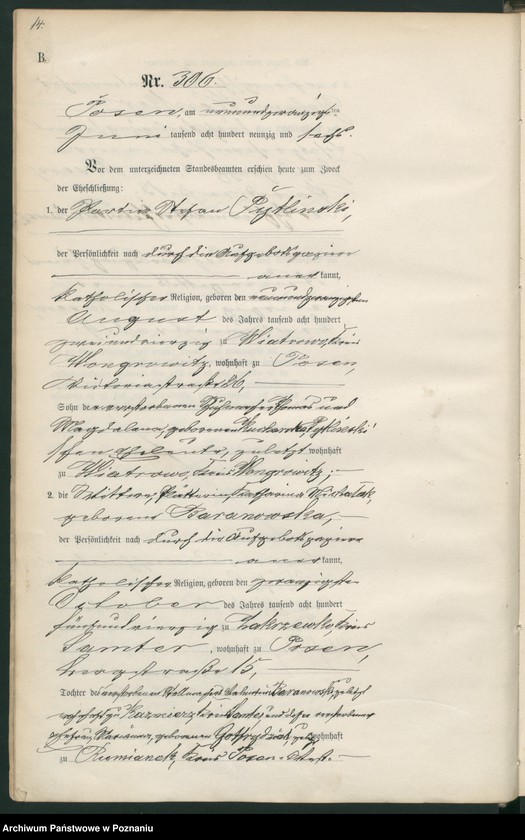 14.
B.
Nr. 306.
Posen, am neunundzwanzigsten
Juni tausend acht hundert neunzig und sechs.
Vor dem unterzeichneten Standesbeamten erschien heute zum Zweck
der Eheschließung:
1. der Portier Stefan Pytlinski,
der Persönlichkeit nach durch die Aufgebotspapiere
anerkannt,
katholischer Religion, geboren den
August des Jahres tausend acht hundert
zweiundvierzig zu Wiatrowo, Kreis
Wongrowitz, wohnhaft zu Posen,
Victoriastraße 26,
Sohn der verstorbenen und
Magdalena, geborenen
schen Eheleute, zuletzt wohnhaft
zu Wiatrowo, Kreis Wongrowitz,
2. die Wittwe, Katharina Michalak,
geborene Baranowska,
der Persönlichkeit nach durch die Aufgebotspapiere
anerkannt,
katholischer Religion, geboren den zwanzigsten
October des Jahres tausend acht hundert
fünfundvierzig zu Zakrzewko, Kreis
Samter, wohnhaft zu Posen,
straße 15,
Tochter des verstorbenen Valentin Baranowski, zuletzt
wohnhaft zu Kazmierz Kreis Samter, und dessen verstorbener
Ehefrau Marianna, geborenen wohnhaft
zu Rumianek, Kreis Posen-West.
Archiwum Państwowe w Poznaniu